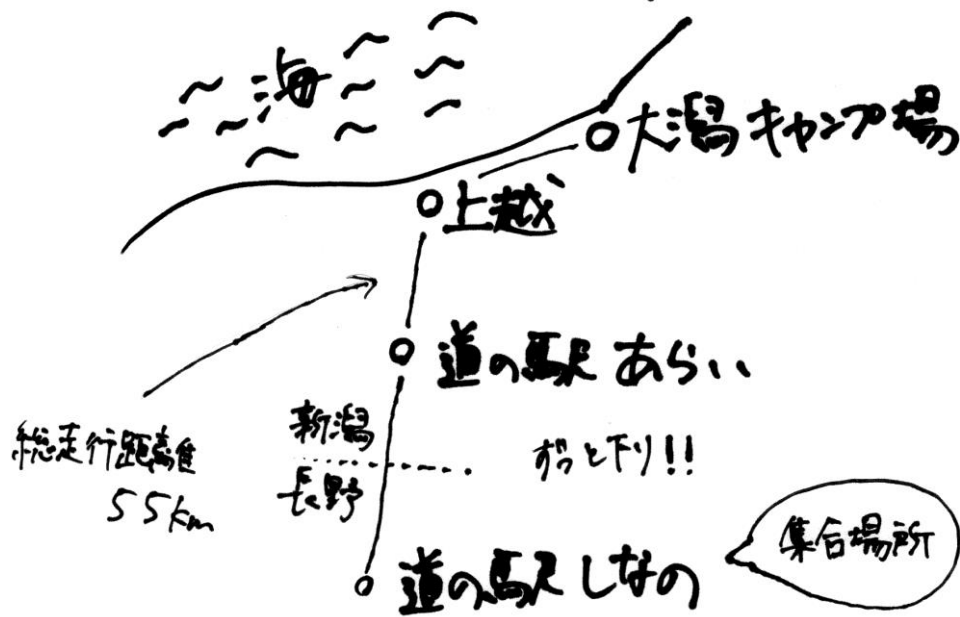 海
大潟キャンプ場
上越
道の駅 あらい
総走行距離
55km
新潟
長野
ずっと下り!!
集合場所
道の駅 しなの